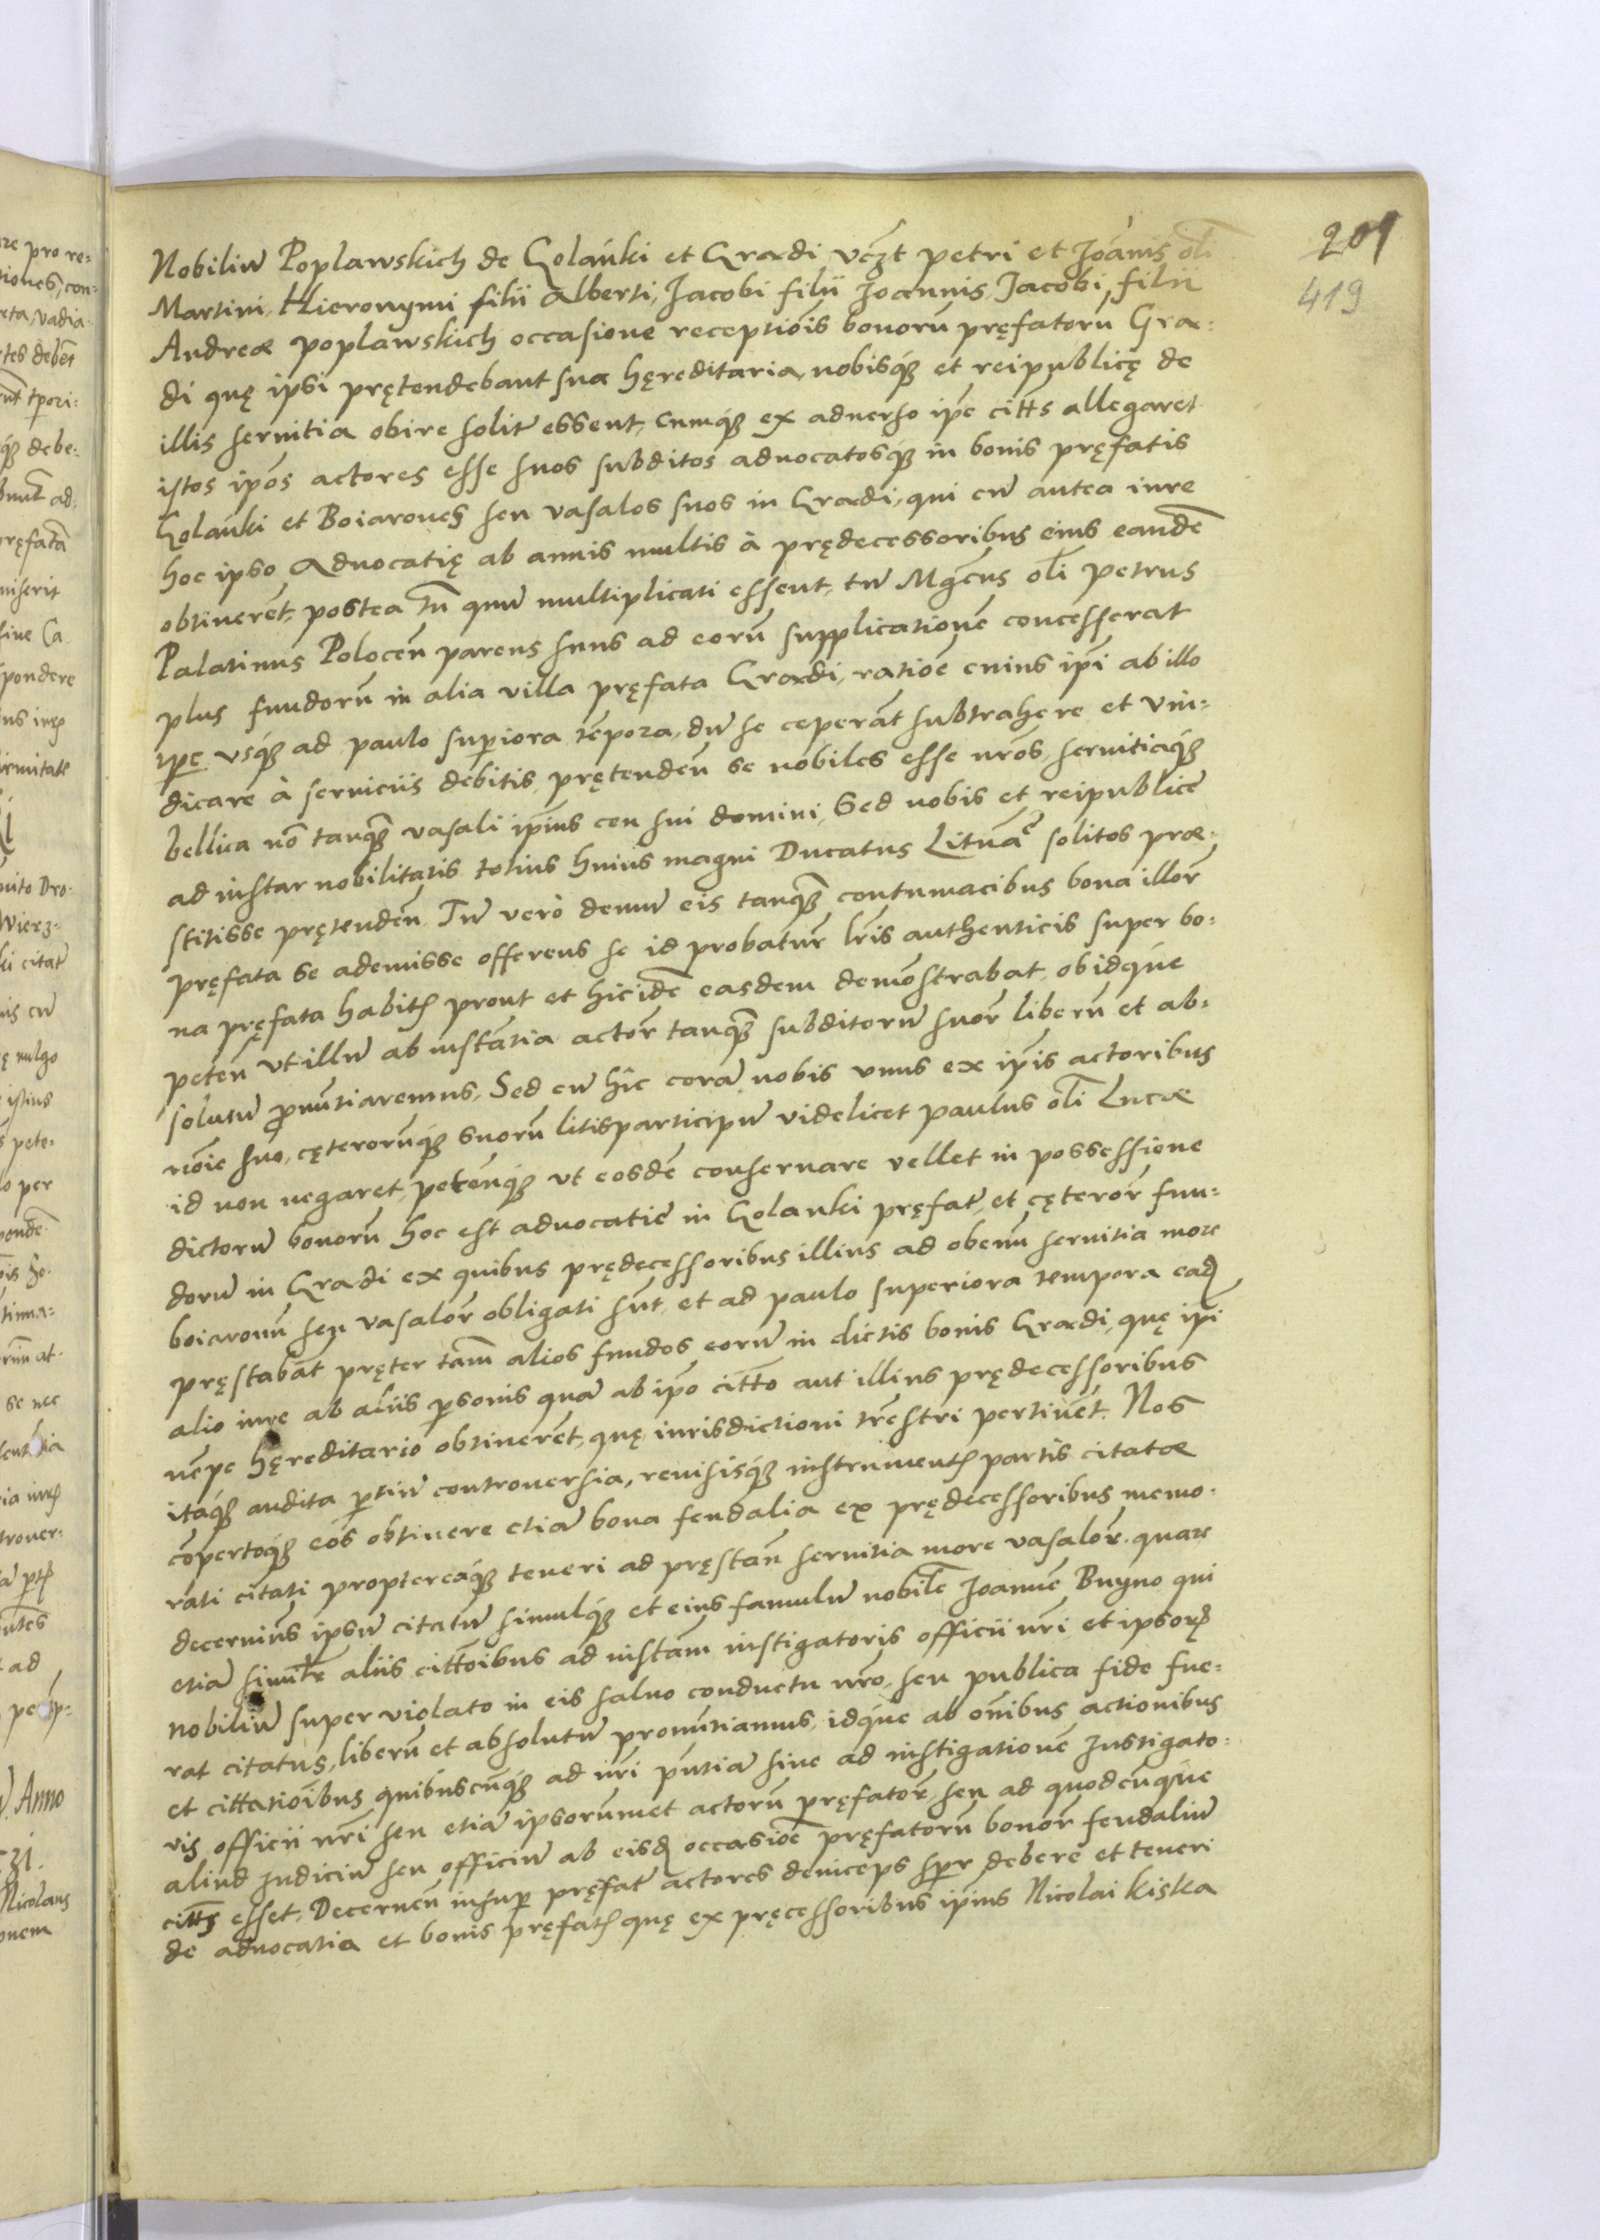 201
419
Nobiliũ Poplawskich de Golánki et Gradi vcꝫt petri et Joãnis oĺi
Martini, Hieronymi filii Alberti, Jacobi filii Joannis, Jacobi filii
Andreæ poplawskich occasione receptiõis bonorũ pręfatorũ Gra:
di quę ipsi prętendebant sua hęreditaria, nobisqꝫ et reipublicę de
illis seruitia obire soliti essent, Cumqꝫ ex aduerso ipẽ citts allegaret
istos ipõs actores esse suos subditos aduocatosqꝫ in bonis pręfatis
Golánki et Boiarones seu vasalos suos in Gradi, qui cũ antea iure
hoc ipso Aduocatię ab annis multis à prędecessoribus eius eandẽ
obtinerẽt, postea tñ quũ multiplicati essent, tũ Mgcus oĺi petrus
Palatinus Polocẽn parens suus ad eorũ supplicationẽ concesserat
plus fundorũ in alia villa pręfata Gradi, ratiõe cuius ipĩ ab illo
ipẽ vsqꝫ ad paulo superiora tẽpora, dũ se ceperãt subtrahere et vin:
dicare à seruiciis debitis, prętendeñ se nobiles esse nrõs, seruitiaqꝫ
bellica nõ tanquã vasali ipĩus ceu sui domini, Sed nobis et reipublicę
ad instar nobilitatis totius huius magni Ducatus Lituãę solitos præ:
stitisse prętendeñ. Tũ verò demũ eis tanquã contumacibus bona illoŕ
pręfata se ademisse offerens se id probaturũ lris authenticis super bo:
na pręfata habitis prout et hic idẽ easdem demõstrabat, ob idqúe
peteñ vt illũ ab instãtia actoŕ tanquã subditorũ suoŕ liberũ et ab:
solutũ pronũtiaremus. Sed cũ hîc corã nobis vnus ex ipĩs actoribus
nõie suo, cęterorũqꝫ suorũ litisparticipũ videlicet paulus oĺi Lucæ
id non negaret, petẽnqꝫ vt eosdẽ conseruare vellet in possessione
dictorũ bonorũ hoc est aduocatię in Golanki pręfatę, et cęteroŕ fun:
dorũ in Gradi ex quibus prędecessoribus illius ad obeuñ seruitia more
boiaronũ seu vasaloŕ obligati sũt, et ad paulo superiora tempora ead
pręstabãt pręter tam̃ alios fundos eorũ in dictis bonis Gradi, quę ipĩ
alio iure ab aliis personis quã ab ipõ citto aut illius prędecessoribus
nẽpe hęreditario obtinerẽt, quę iurisdictioni trẽstri pertinẽt. Nos
itaqꝫ audita partiũ controuersia, reuisisqꝫ instrumentis partis citatæ
cõpertoqꝫ eos obtinere etiã bona feudalia ex prędecessoribus memo:
rati citati proptereaqꝫ teneri ad pręstañ seruitia more vasaloŕ. quare
decernimus ipsũ citatũ simulqꝫ et eius famulũ nobilẽ Joannẽ Buyno qui
etiã simulr̃ aliis cittõibus ad instam̃ instigatoris officii nrĩ et ipsoꝝ
nobiliũ super violato in eis saluo conductu nrõ, seu publica fide fue:
rat citatus, liberũ et absolutũ pronũtiamus, idqúe ab oñibus actionibus
et cittatiõibus quibuscũqꝫ ad nrĩ pñtiã siue ad instigationẽ Justigato:
ris officii nrĩ seu etiã ipsorũmet actorũ pręfatoŕ, seu ad quodcũqúe
aliud Judiciũ seu officiũ ab eisd occasiõe pręfatorũ bonoŕ feudaliũ
citts esset. Decerneñ insuper pręfat actores deinceps semper debere et teneri
de aduocatia et bonis pręfatis quę ex pręcessoribus ipĩus Nicolai Kiska